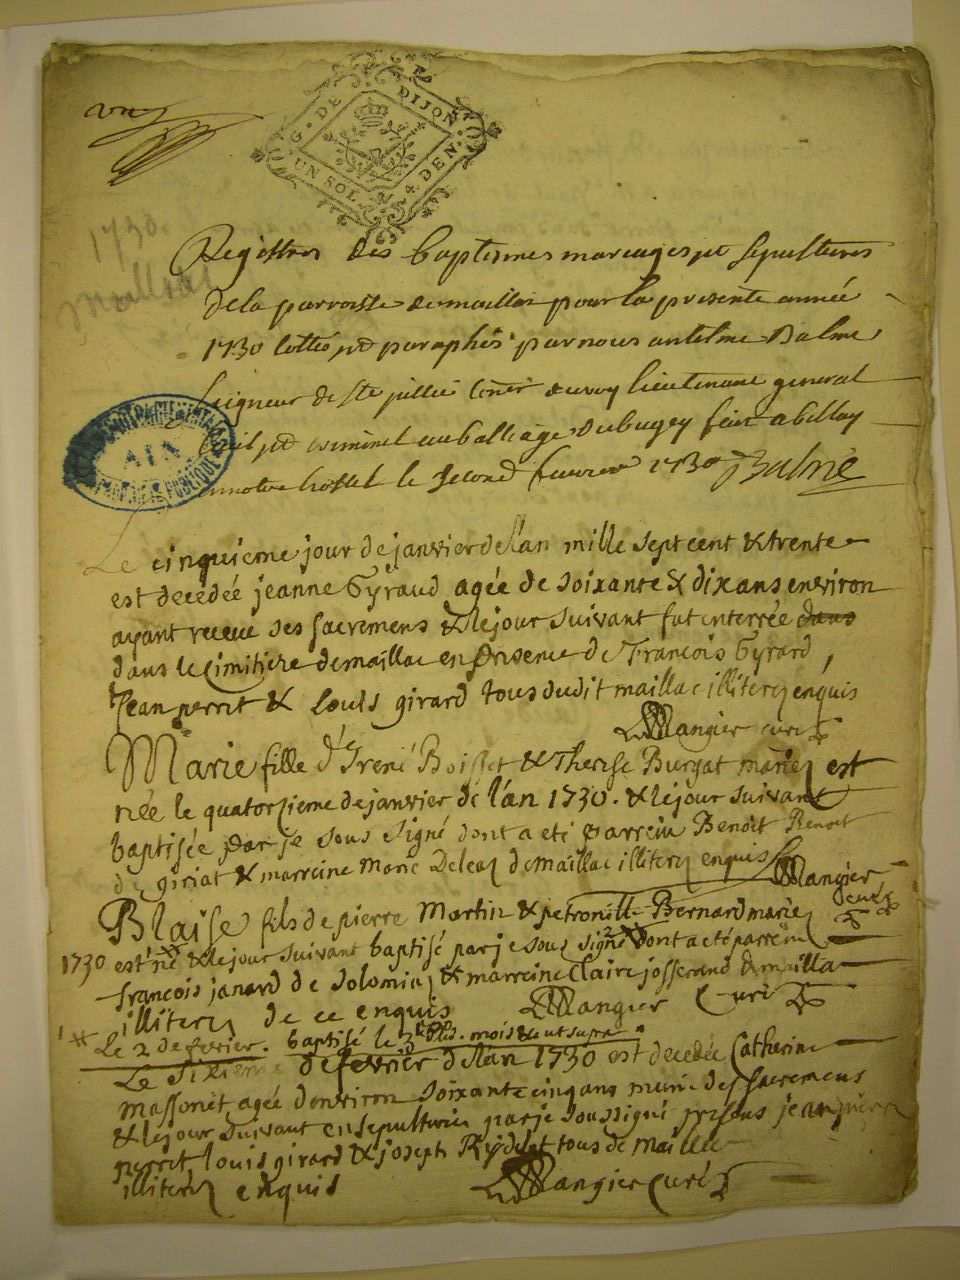 G. DE DIJON
UN SOL 4 DEN.
1730.
Maillat
Registres des baptesmes mariages et sepultures
de la parroisse de maillac pour la presente année
1730 cottés et paraphés par nous antelme Balme
seigneur de Ste jullie Coner du roy lieutenant general
civil et criminel au balliage du bugey fait a bellay
en notre hostel le second fevrier 1730 Balme
AIN
Le cinquieme jour de janvier de l'an mille sept cent & trente
est decedée jeanne Gyraud agée de soixante & dix ans environ
ayant receu ses sacremens & le jour suivant fut interrée dans
dans le cimitiere de maillac en presence de François Gyrard,
Jean perret & Louis girard tous dudit maillac illiterez enquis
Mangier curé
Marie fille d'Irené Boisset & Therese Burgat mariez est
née le quatorzieme de janvier de l'an 1730. & le jour suivant
baptisée par je sous signé dont a eté parrein Benoit Benoit
du giriat & marreine Marie de maillac illiterez enquis
Mangier
curé
Blaise fils de pierre Martin & petronille Bernard mariez
1730 est né & le jour suivant baptisé par je sous signé dont a eté parrein
francois janard de Solomiaz & marreine Claire josserand de mailla
illiterez de ce enquis Mangier Curé
Le 2 de fevrier. baptisé le 3e mois & an supra
Le de fevrier de l'an 1730 est decedée Catherine
Massonet agée d'environ soixante cinq ans munie des sacremens
& le jour suivant ensepulturée par je soussigné presens jean pierre
perret, louis girard & joseph Reydelet tous de maille
illiterez enquis Mangier Curé